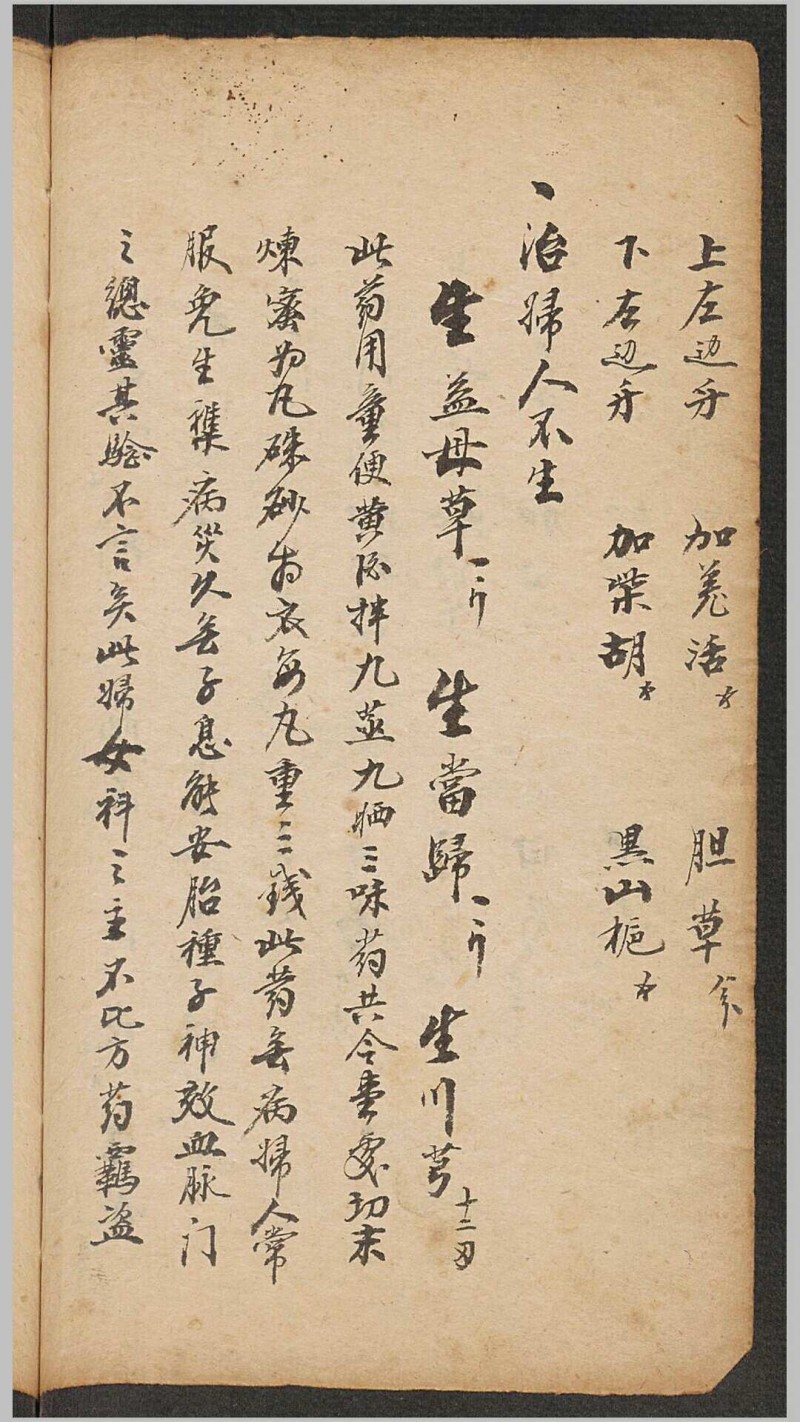 上左边牙 加羗活 胆草
下左边牙 加柴胡 黑山梔
、治婦人不生
生益母草一斤 生當歸一斤 生川芎十二刃
此药用童便黄酒拌九蒸九晒三味药共合壹處切末
煉蜜为丸硃砂为衣每丸重三錢此药無病婦人常
服免生雜病災久無子息能安胎種子神效血脉门
之總靈其驗不言矣此婦女科之主不比方药